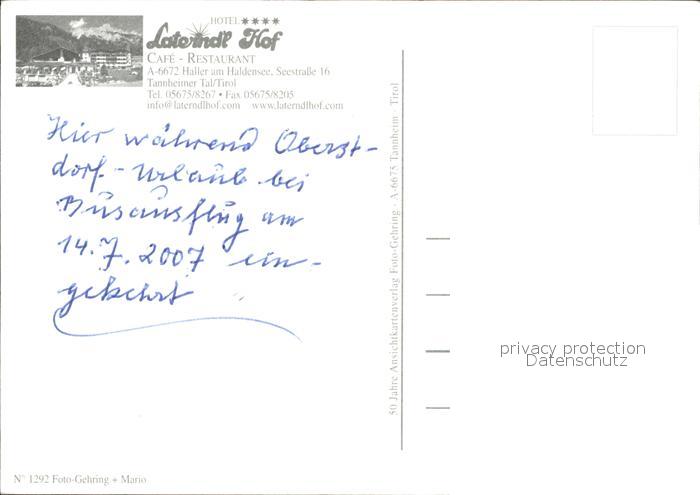 HOTEL ★★★★
Laterndl Hof
CAFÉ - RESTAURANT
A-6672 Haller am Haldensee, Seestraße 16
Tannheimer Tal/Tirol
Tel. 05675/8267 • Fax 05675/8205
info@laterndlhof.com www.laterndlhof.com
Hier während Oberst-
dorf-Urlaub bei
Busausflug am
14.7.2007 ein-
gekehrt
50 Jahre Ansichtkartenverlag Foto-Gehring - A-6675 Tannheim - Tirol
privacy protection
Datenschutz
N° 1292 Foto-Gehring + Mario